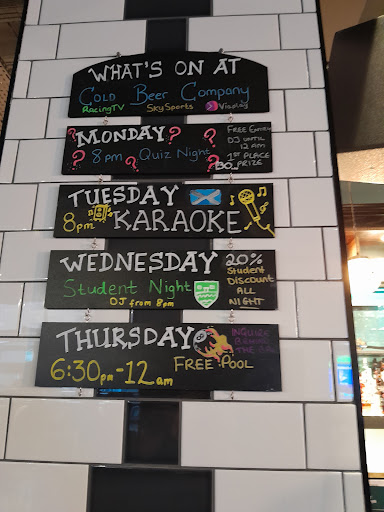 WHAT'S ON AT
COLD BEER COMPANY
RacingTV SkySports Display
MONDAY??
8pm Quiz Night
?
?
?
FREE Entry
DJ UNTIL
12 AM
1ST PLACE
PRIZE
TUESDAY
8pm KARAOKE
WEDNESDAY
Student Night
DJ from 8pm
20%
Student
DISCOUNT
ALL
NIGHT
THURSDAY
6:30pm-12am
INQUIRE
BEHIND
THE BAR
FREE POOL